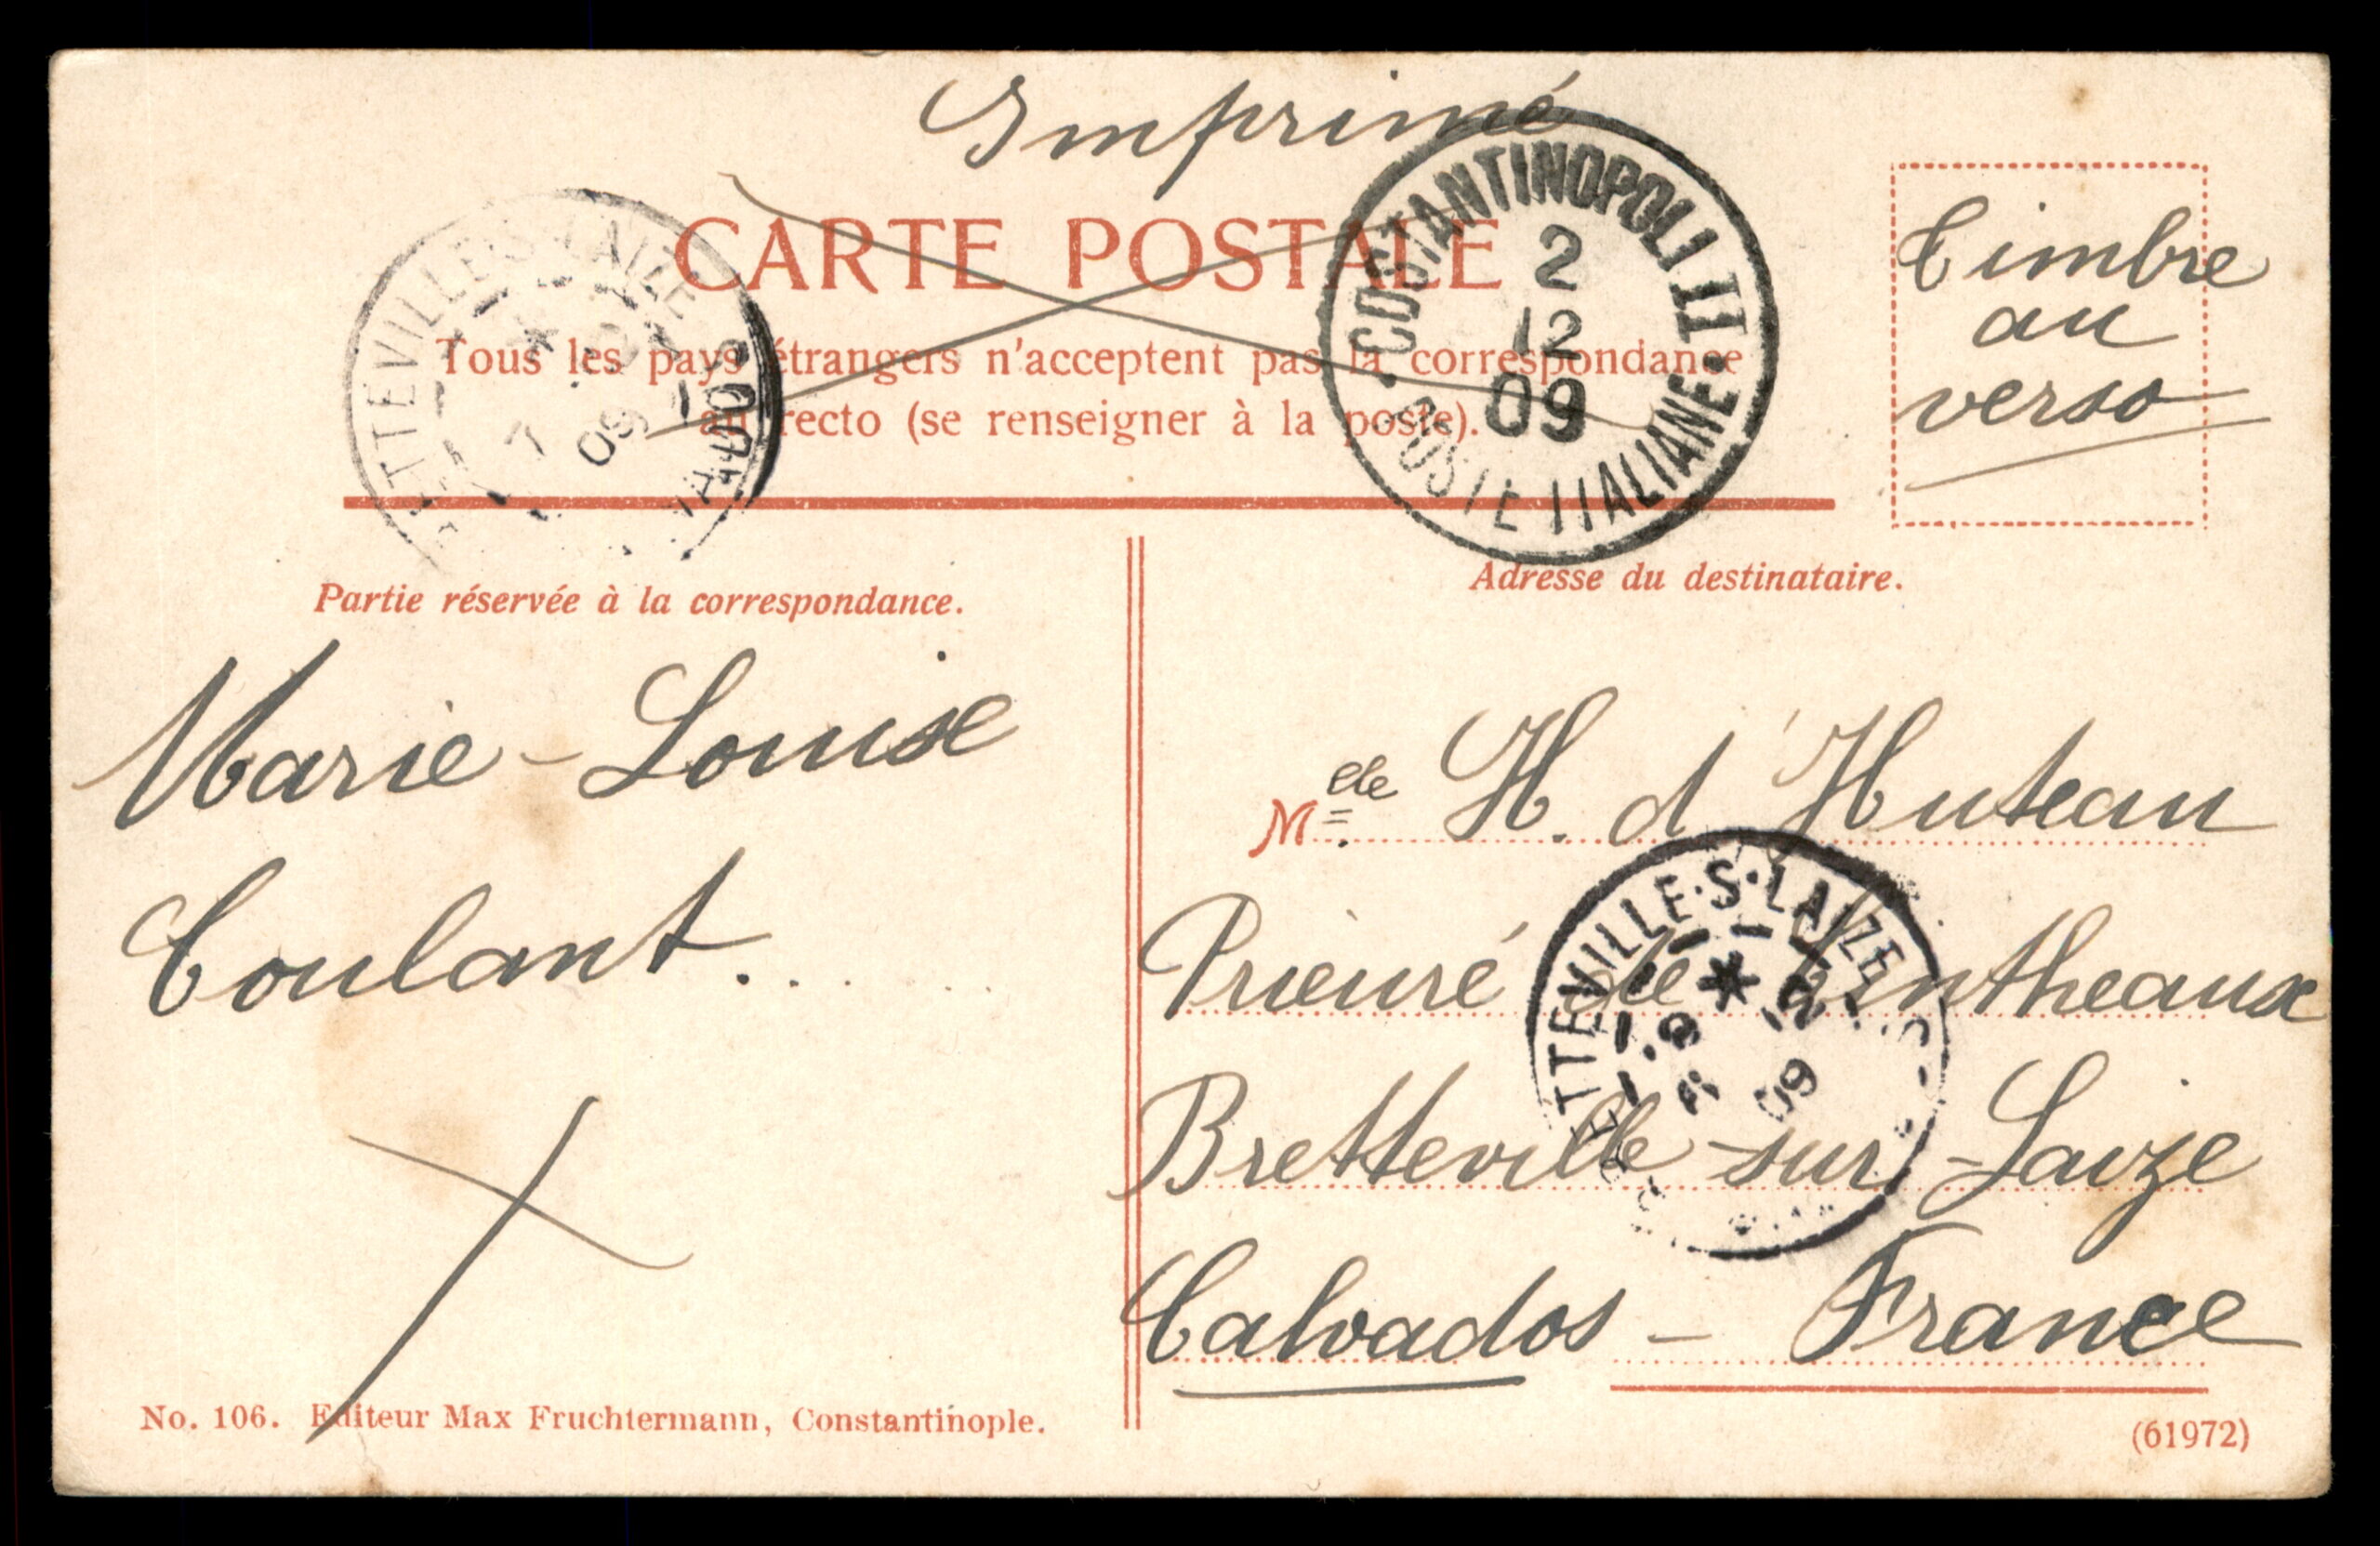 Imprimé
CARTE POSTALE
Tous les pays étrangers n'acceptent pas la correspondance
au recto (se renseigner à la poste).
COSTANTINOPOLI II
2
12
09
POSTE ITALIANE
Timbre
au
verso
TTEVILLE
09
Partie réservée à la correspondance.
Marie-Louise
Coulant...
No. 106. Editeur Max Fruchtermann, Constantinople.
Adresse du destinataire.
Melle H. d'Huteau
Prieuré de Quintheaux
Bretteville-sur-Laize
Calvados - France
ETTEVILLE·S·LAIZE
12
09
(61972)